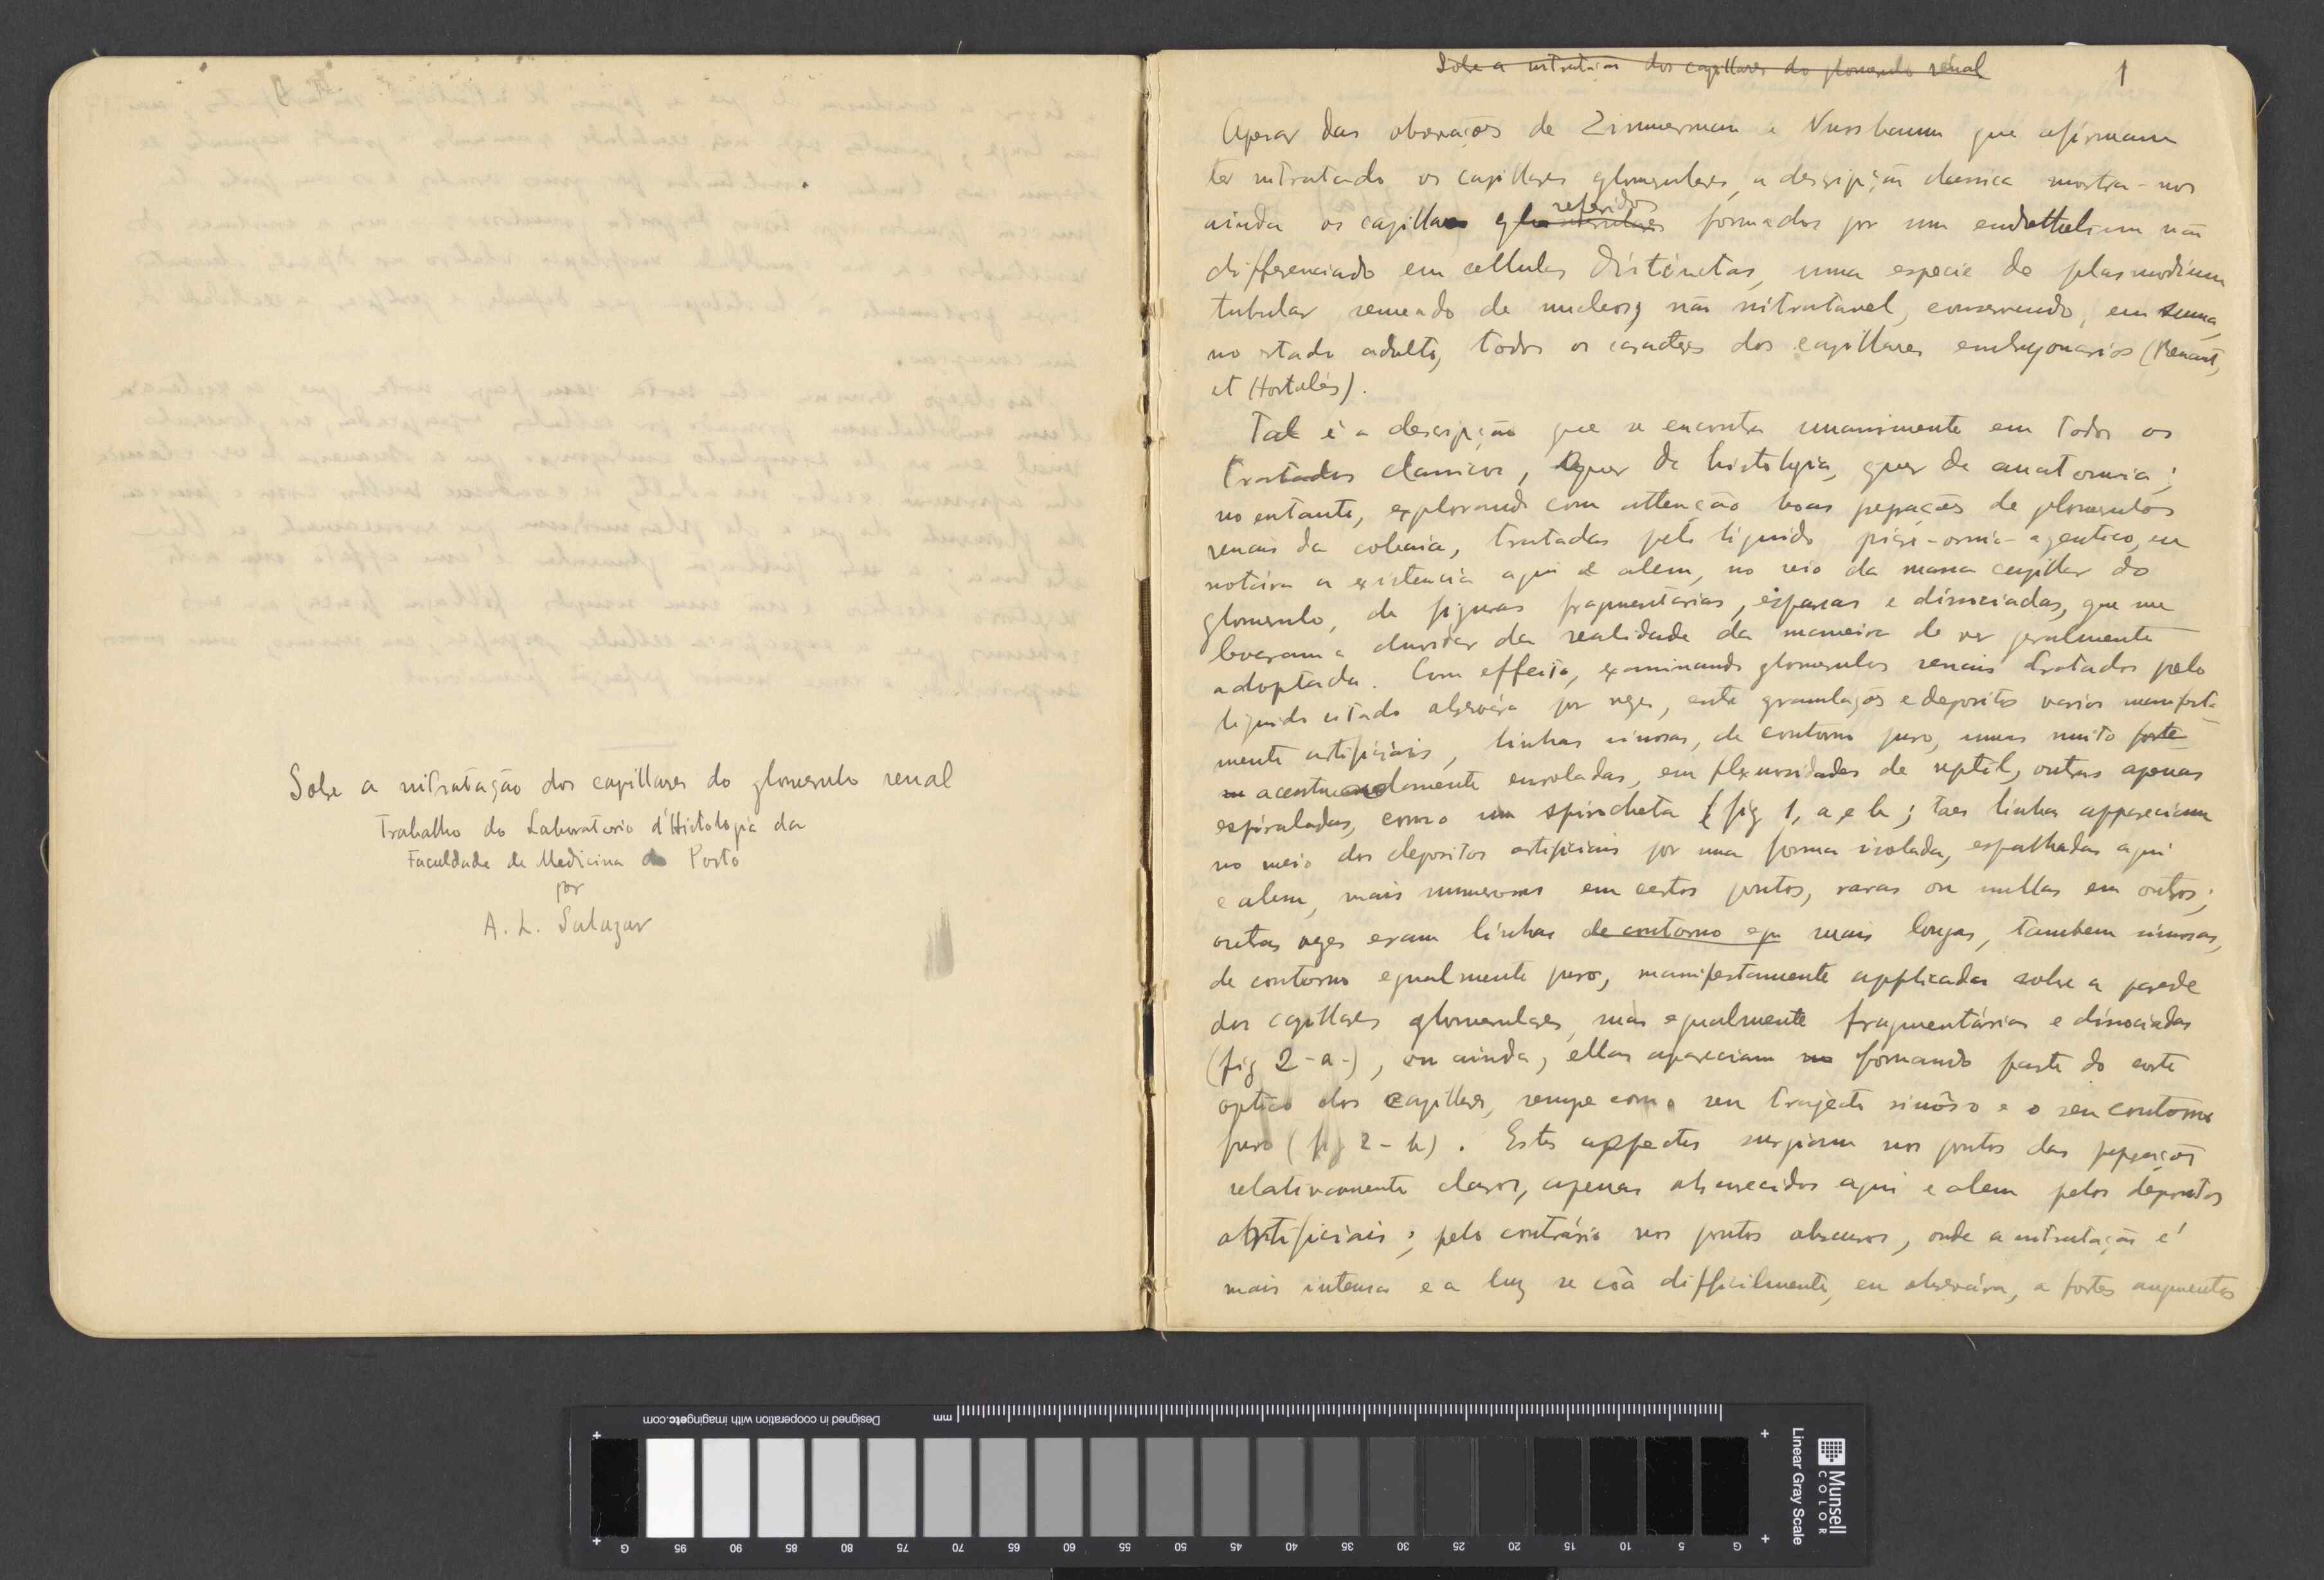 Sobre a nitratação dos capillares do glomerulo renal
Trabalho do Laboratorio d'Histologia da
Faculdade de Medicina do Porto
por
A. L. Salazar
Sobre a nitratação dos capillares do glomerulo renal
1
Apesar das observações de Zimmerman e Nussbaum que afirmam
ter nitratado os capillares glomerulares, a descripção classica mostra-nos
ainda os capillares glomerulares referidos formados por um endothelium não
differenciado em cellulas distinctas, uma especie de plasmodium
tubular semeado de nucleos, não nitratavel, conservando, em summa,
no estado adulto, todos os caracteres dos capillares embryonarios (Renaut,
et Hortolés).
Tal é a descripção que se encontra unanimente em todos os
tratados classicos, quer de histologia, quer de anatomia;
no entanto, explorando com attenção boas prepações de glomerulos
renais da cobaia, tratadas pelo liquido picri-osmio-argentico, eu
notára a existencia aqui e alem, no seio da massa capillar do
glomerulo, de figuras fragmentarias, esparsas e dissociadas, que me
levaram a duvidar da realidade da maneira de ver geralmente
adoptada. Com effeito, examinando glomerulos renais tratados pelo
liquido citado observára por vezes, entre granulações e depositos varios manifesta-
mente artificiais, linhas sinosas, de contorno puro, umas muito forte
m acentuadamente enroladas, em flexuosidades de reptil, outras apenas
espiraladas, como um spirocheta (fig 1, a, e b; taes linhas appareciam
no meio dos depositos artificiais por uma forma isolada, espalhadas aqui
e alem, mais numerosas em certos pontos, raras ou nullas em outros;
outras vezes eram linhas de contorno egu mais longas, tambem sinosas,
de contorno egualmente puro, manifestamente applicadas sobre a parede
dos capillares glomerulares, mas egualmente fragmentárias e dissociadas
(fig 2-a-), ou ainda, ellas apareciam no formando parte do corte
optico dos capillares, sempre com o seu trajecto sinôso e o seu contorno
puro (fig 2-b). Estes aspectos surgiam nos pontos das prepações
relativamente claros, apenas obscurecidos aqui e alem pelos depositos
artificiais; pelo contrário nos pontos obscuros, onde a nitratação é
mais intensa e a luz se côa difficilmente, eu observára, a fortes augmentos
Designed in cooperation with imagingetc.com
mm
G 95 90 85 80 75 70 65 60 55 50 45 40 35 30 25 20 15 10 5 G
Linear Gray Scale
Munsell
COLOR